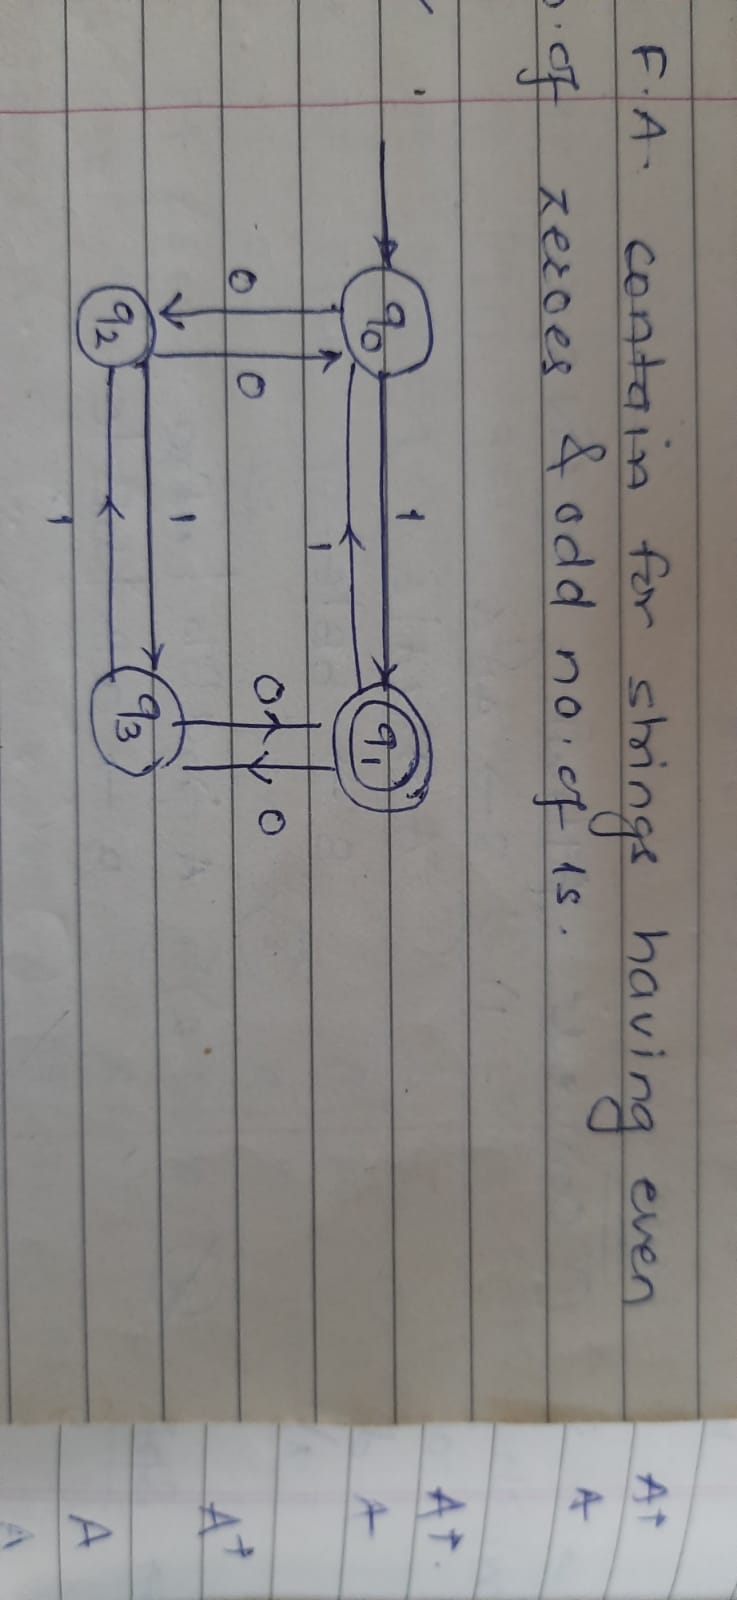 F.A. contain for strings having even
o. of zeroes & odd no. of 1s.
q0
1
q1
1
0
0
0
0
q2
1
q3
1
A+
A
A+.
A
A+
A
A